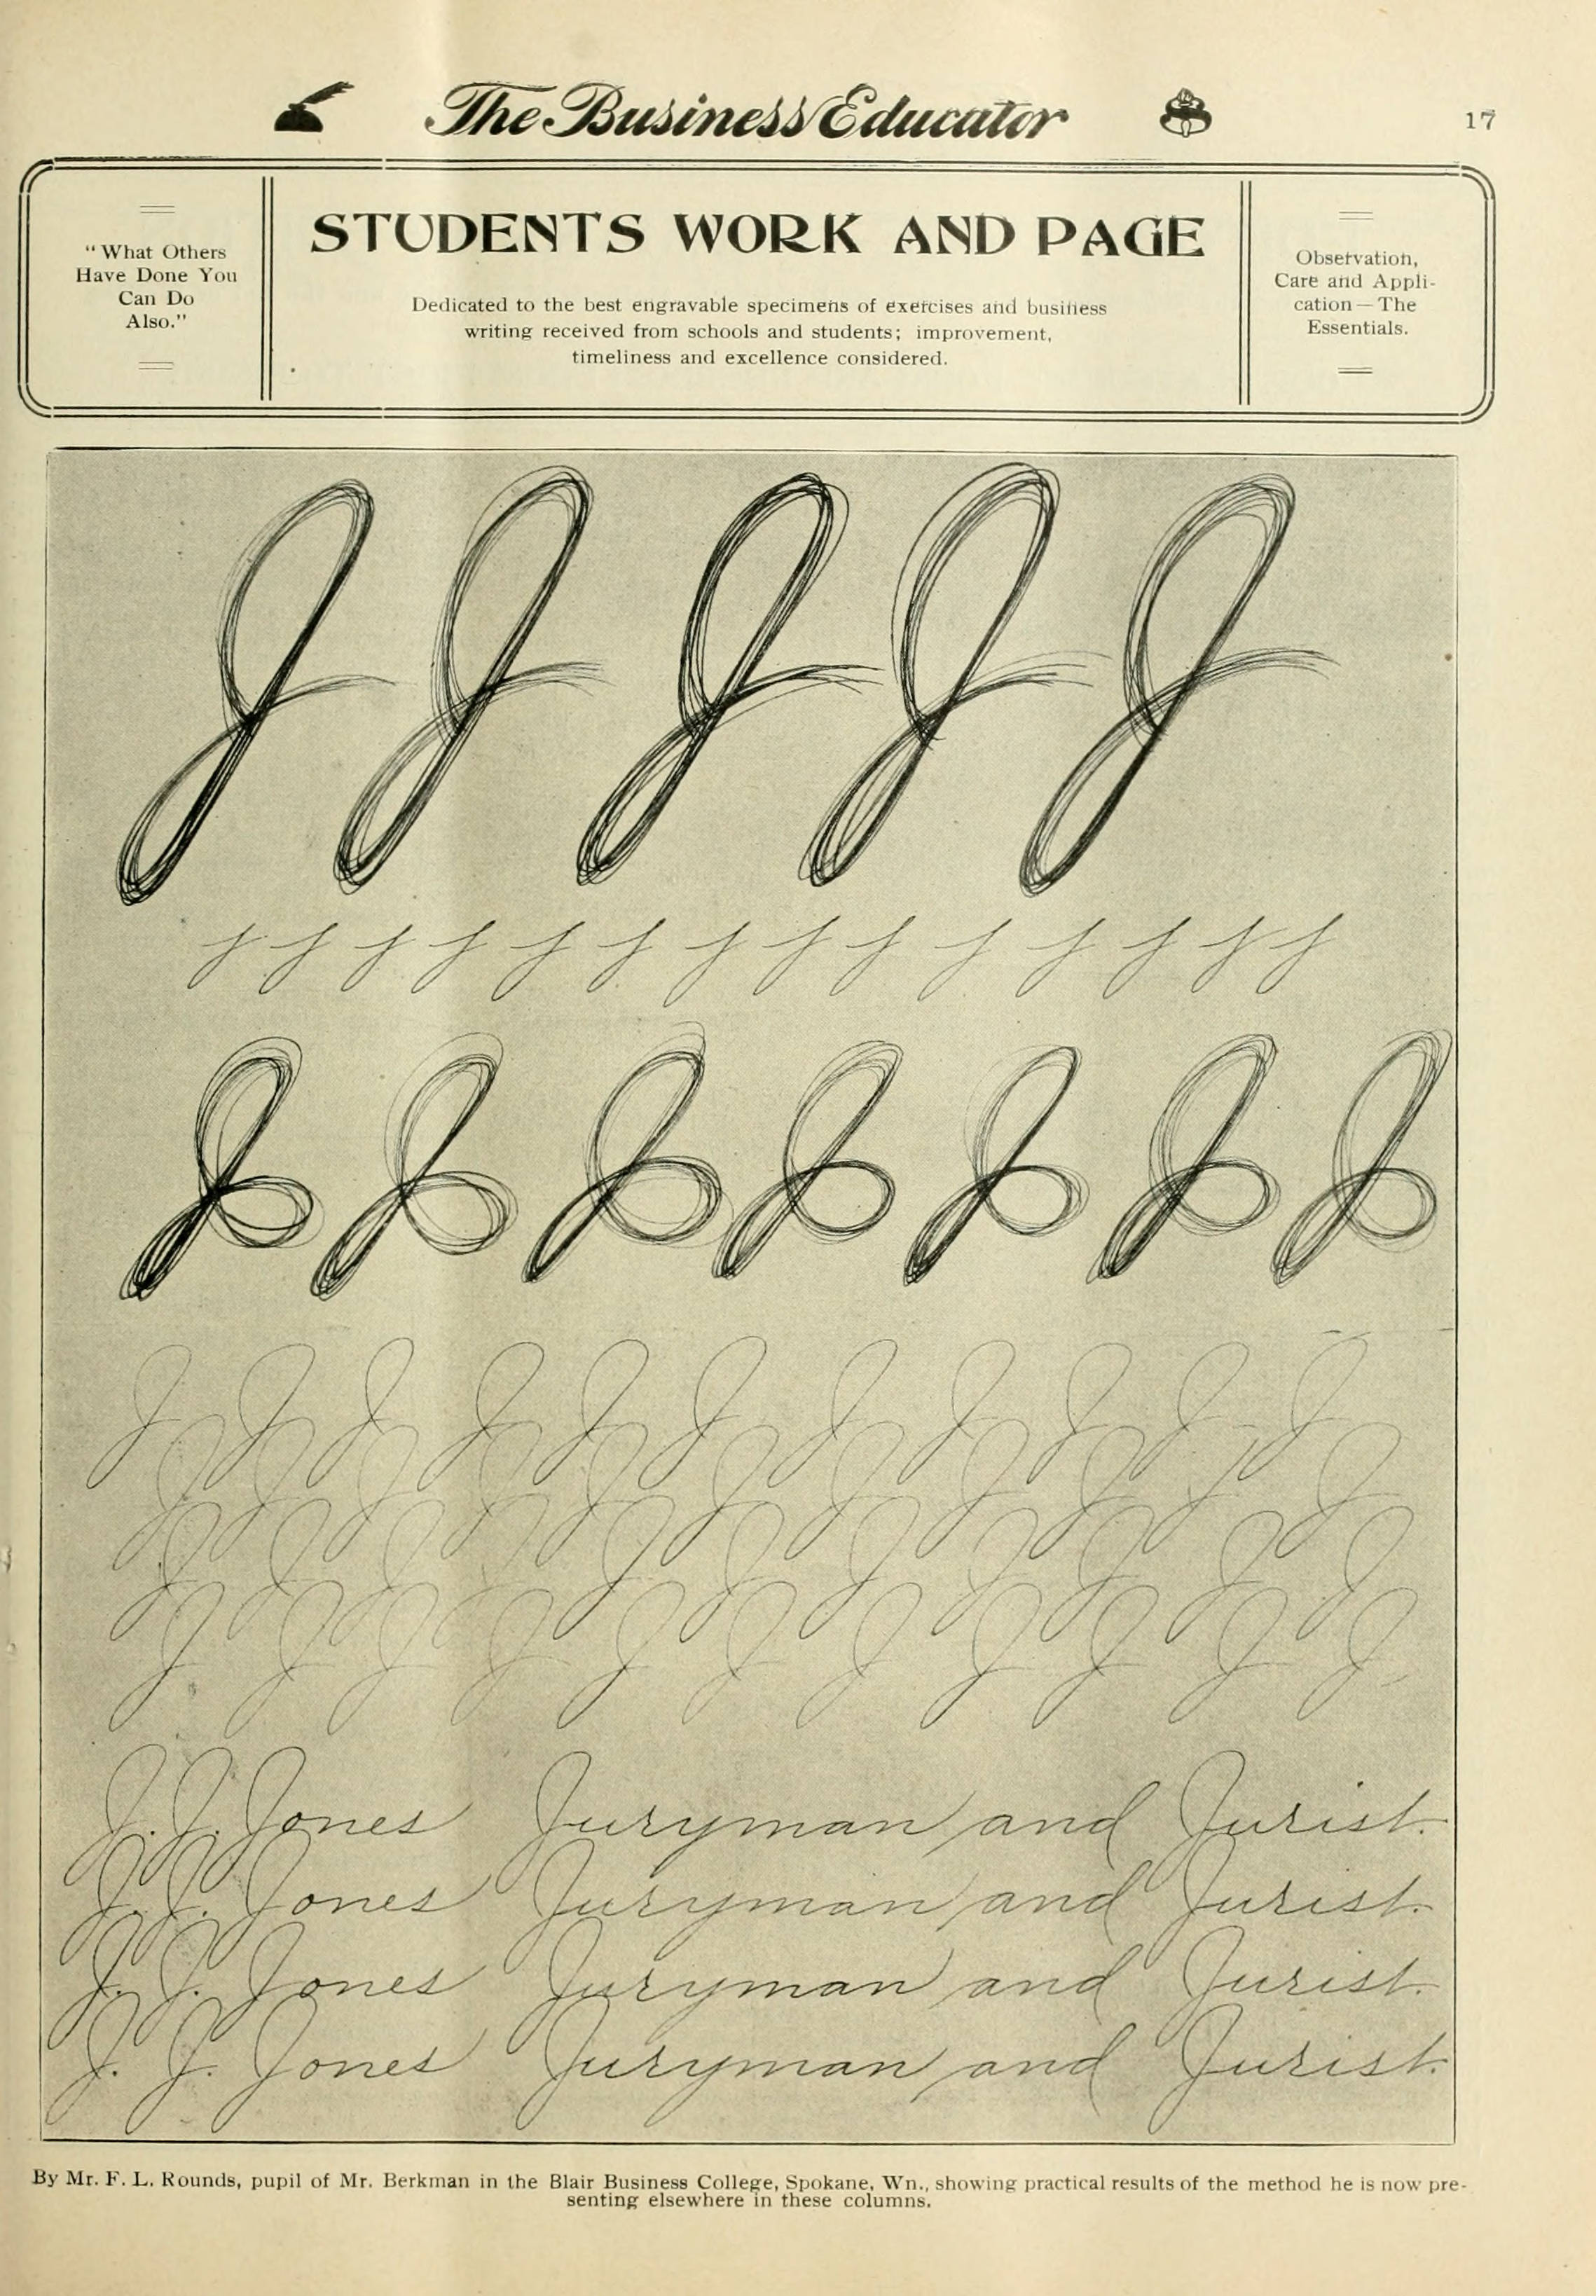 The Business Educator
17
"What Others
Have Done You
Can Do
Also."
STUDENTS WORK AND PAGE
Dedicated to the best engravable specimens of exercises and business
writing received from schools and students; improvement,
timeliness and excellence considered.
Observation,
Care and Appli-
cation—The
Essentials.
J J J J J
j j j j j j j j j j j j j j
J J J J J J J
J J J J J J J J J J J
J J J J J J J J J J J
J J J J J J J J J J J
J J J J J J J J J J J
J. J. Jones Juryman and Jurist.
J. J. Jones Juryman and Jurist.
J. J. Jones Juryman and Jurist.
J. J. Jones Juryman and Jurist.
By Mr. F. L. Rounds, pupil of Mr. Berkman in the Blair Business College, Spokane, Wn., showing practical results of the method he is now pre-
senting elsewhere in these columns.